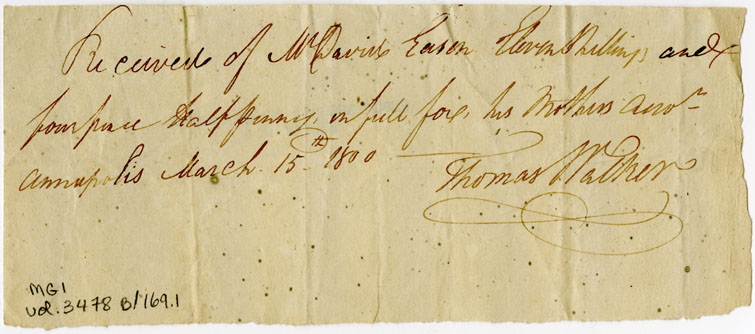 Received of Mr David Eason Eleven Shillings and
fourpence Halfpenny in full for his Mothers Accot
Annapolis March 15th 1800
Thomas Walker
MG1
vol. 3478 B/169.1